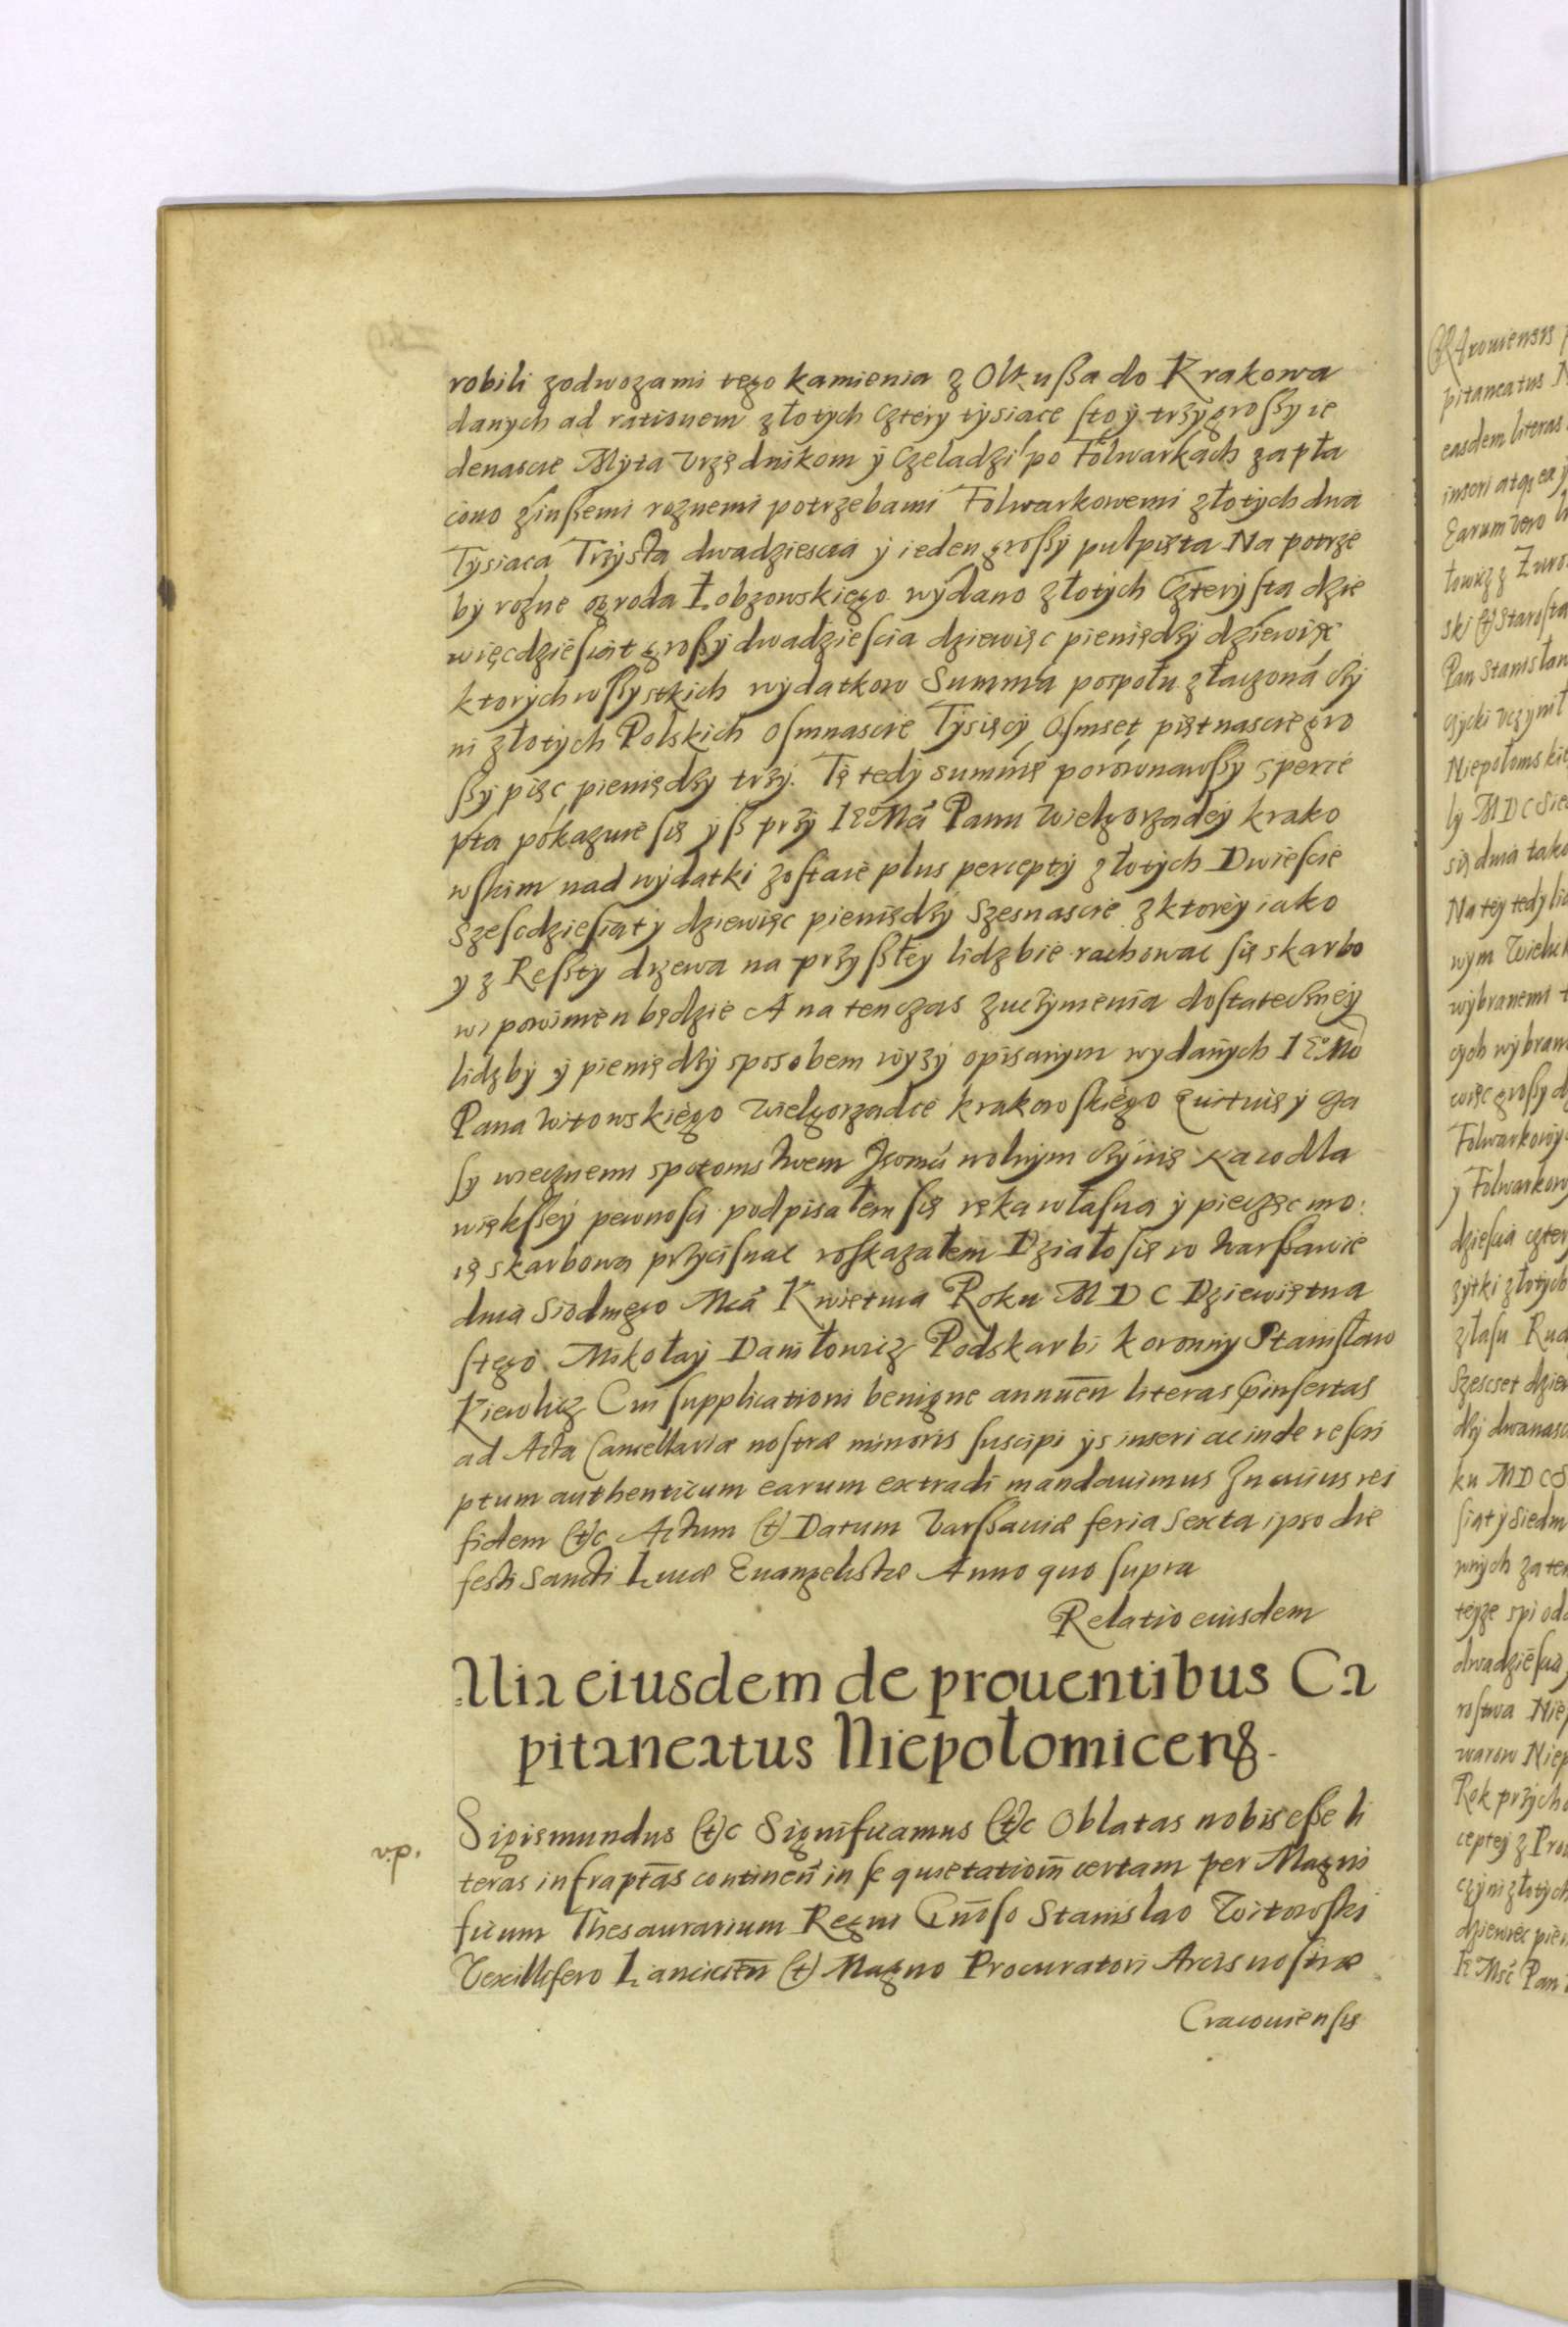 robili zodwozami tego kamienia z Olkußa do Krakowa
danych ad rationem złotych cztery tysiace sto ÿ trzy großy ie
denascie Myta Vrzędnikom ÿ Czeladzi po Folwarkach zapła
cono zinßemi roznemi potrzebami Folwarkowemi złotych dwa
Tysiaca Trzysta dwadziescia ÿ ieden großy pulpięta Na potrze
by rozne ogroda Łobzowskiego wydano złotych Czterysta dzie
więcdziesiąt großy dwadziescia dziewięc pieniędzy dziewięc
ktorych wßystkich wydatkow Summa pospołu złaczona czy
ni złotych Polskich osmnascie Tysięcy Osmset piętnascie gro
ßy pięc pieniędzy trzy. Tę tedy summę porownawßy sperce
pta pokazuie się yß przy Ie⁰ Mci Panu Wielgorzadcy krako
wskim nad wydatki zostaie plus percepty złotych Dwiescie
Szescdziesiąt y dziewięc pieniędzy Szesnascie z ktorey iako
y z Reßty drzewa na przyßłey lidzbie rachowac się skarbo
wi powinien będzie A na tenczas zuczynienia dostateczney
lidzby ÿ pieniędzy sposobem wyzy opisanym wydanych Ie⁰ Mci
Pana Witowskiego Wielgorzadce krakowskiego quituię y cza
sy wiecznemi spotomstwem Jeomu wolnym czynię Za co dla
więkßey pewnosci podpisałem się ręka własna ÿ pieczęc mo:
ię skarbową przycisnac roskazałem Działo się w Warßawie
dnia siodmego Mca Kwietnia Roku M D C Dziewiętna
stego. Mikołay Daniłowicz Podskarbi koronny Stanisław
Kiewlicz Cui supplicationi benigne annuen̄ literas p̄insertas
ad Acta Cancellariæ nostræ minoris suscipi ÿs inseri ac inde rescri
ptum authenticum earum extradi mandauimus In cuius rei
fidem (et)c Actum (et) Datum Varßauiæ feria Sexta ipso die
festi Sancti Lucæ Euangelistæ Anno quo supra
Relatio eiusdem
Alia eiusdem de prouentibus Ca
pitaneatus Niepołomicen̄
Sigismundus (et)c Significamus (et)c Oblatas nobis esse li
teras infraptas continen̄ in se quietation̄ certam per Magni
ficum Thesaurarium Regni G̅n̅oso Stanislao Witowski
Vexillifero Lancicien̄ (et) Magno Procuratori Arcis nostræ
Cracouiensis